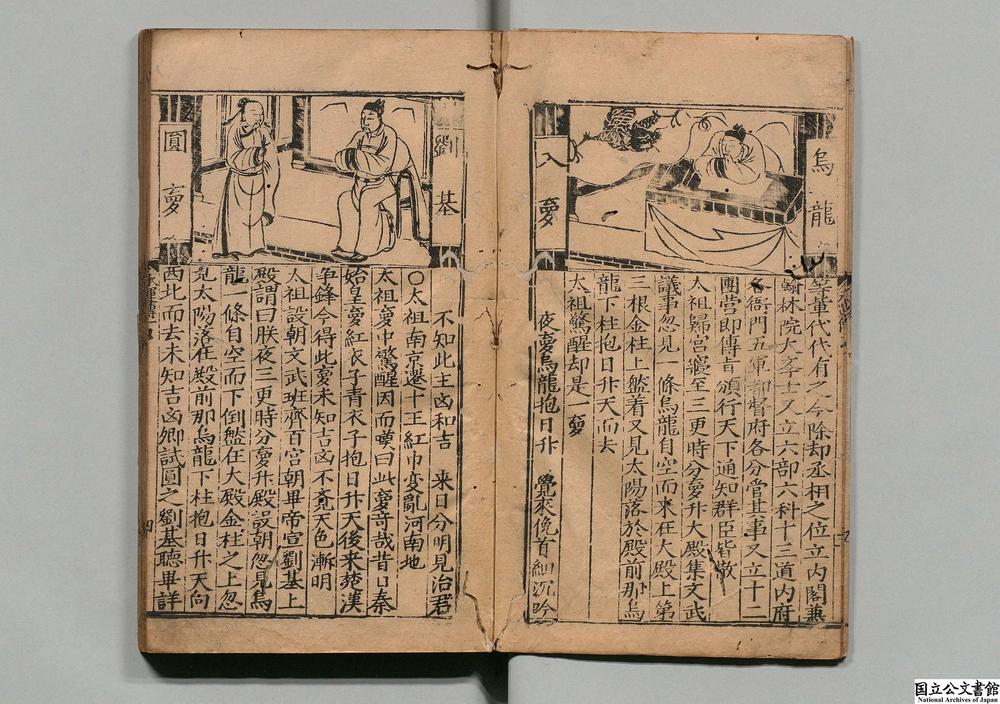 烏龍
入夢
等輩代代有之今除却丞相之位立內閣兼
翰林院大學士又立六部六科十三道内府
衙門五軍都督府各分管其事又立十二
團營即傳旨頒行天下通知群臣皆散
太祖歸宮寢至三更時分夢升大殿集文武
議事忽見一條烏龍自空而來在大殿上第
三根金柱上盤着又見太陽落於殿前那烏
龍下柱抱日升天而去
太祖驚醒却是一夢
夜夢烏龍抱日升 覺來俛首細沉吟
劉基
圓夢
不知此主凶和吉 来日分明見治君
○太祖南京遷十王紅巾变亂河南地
太祖夢中驚醒因而嘆曰此夢奇哉昔日秦
始皇夢紅衣子青衣子抱日升天後来楚漢
争鋒今得此夢未知吉凶不覔天色漸明
太祖設朝文武班齊百官朝畢帝宣劉基上
殿謂曰朕夜三更時分夢升殿設朝忽見烏
龍一條自空而下倒盤在大殿金柱之上忽
見太陽落在殿前那烏龍下柱抱日升天向
西北而去未知吉凶卿試圓之劉基聽畢詳
四
国立公文書館
National Archives of Japan